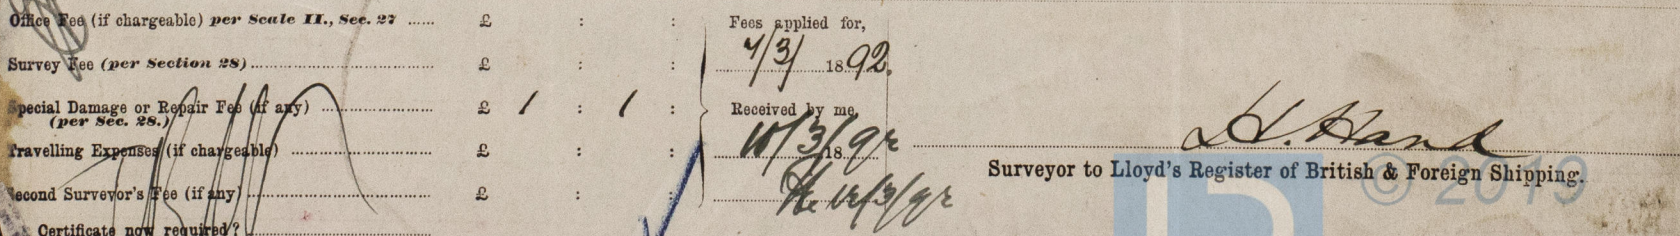 Office Fee (if chargeable) per Scale II., Sec. 27 ...... £ : :
Survey Fee (per Section 28) ...... £ : :
Special Damage or Repair Fee (if any) ...... £ 1 : 1 :
(per Sec. 28.)
Travelling Expenses (if chargeable) ...... £ : :
Second Surveyor's Fee (if any) ...... £ : :
Certificate now required?
Fees applied for,
7/3/ 1892.
Received by me,
10/3/ 18 92
12/3/92
H. Hand
Surveyor to Lloyd's Register of British & Foreign Shipping.
© 2019